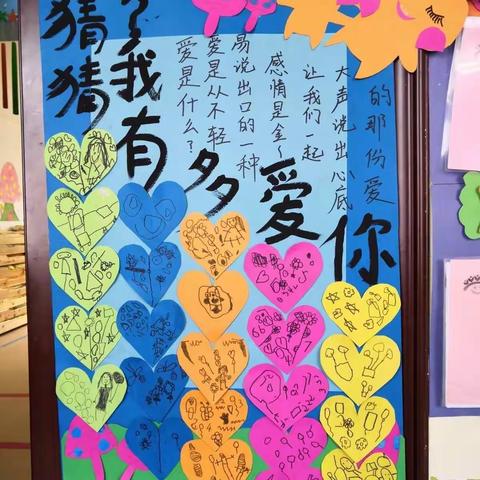 猜猜我有多爱你
爱是什么？
爱是从不轻
易说出口的一种
感情是金~
让我们一起
大声说出心底
的那份爱